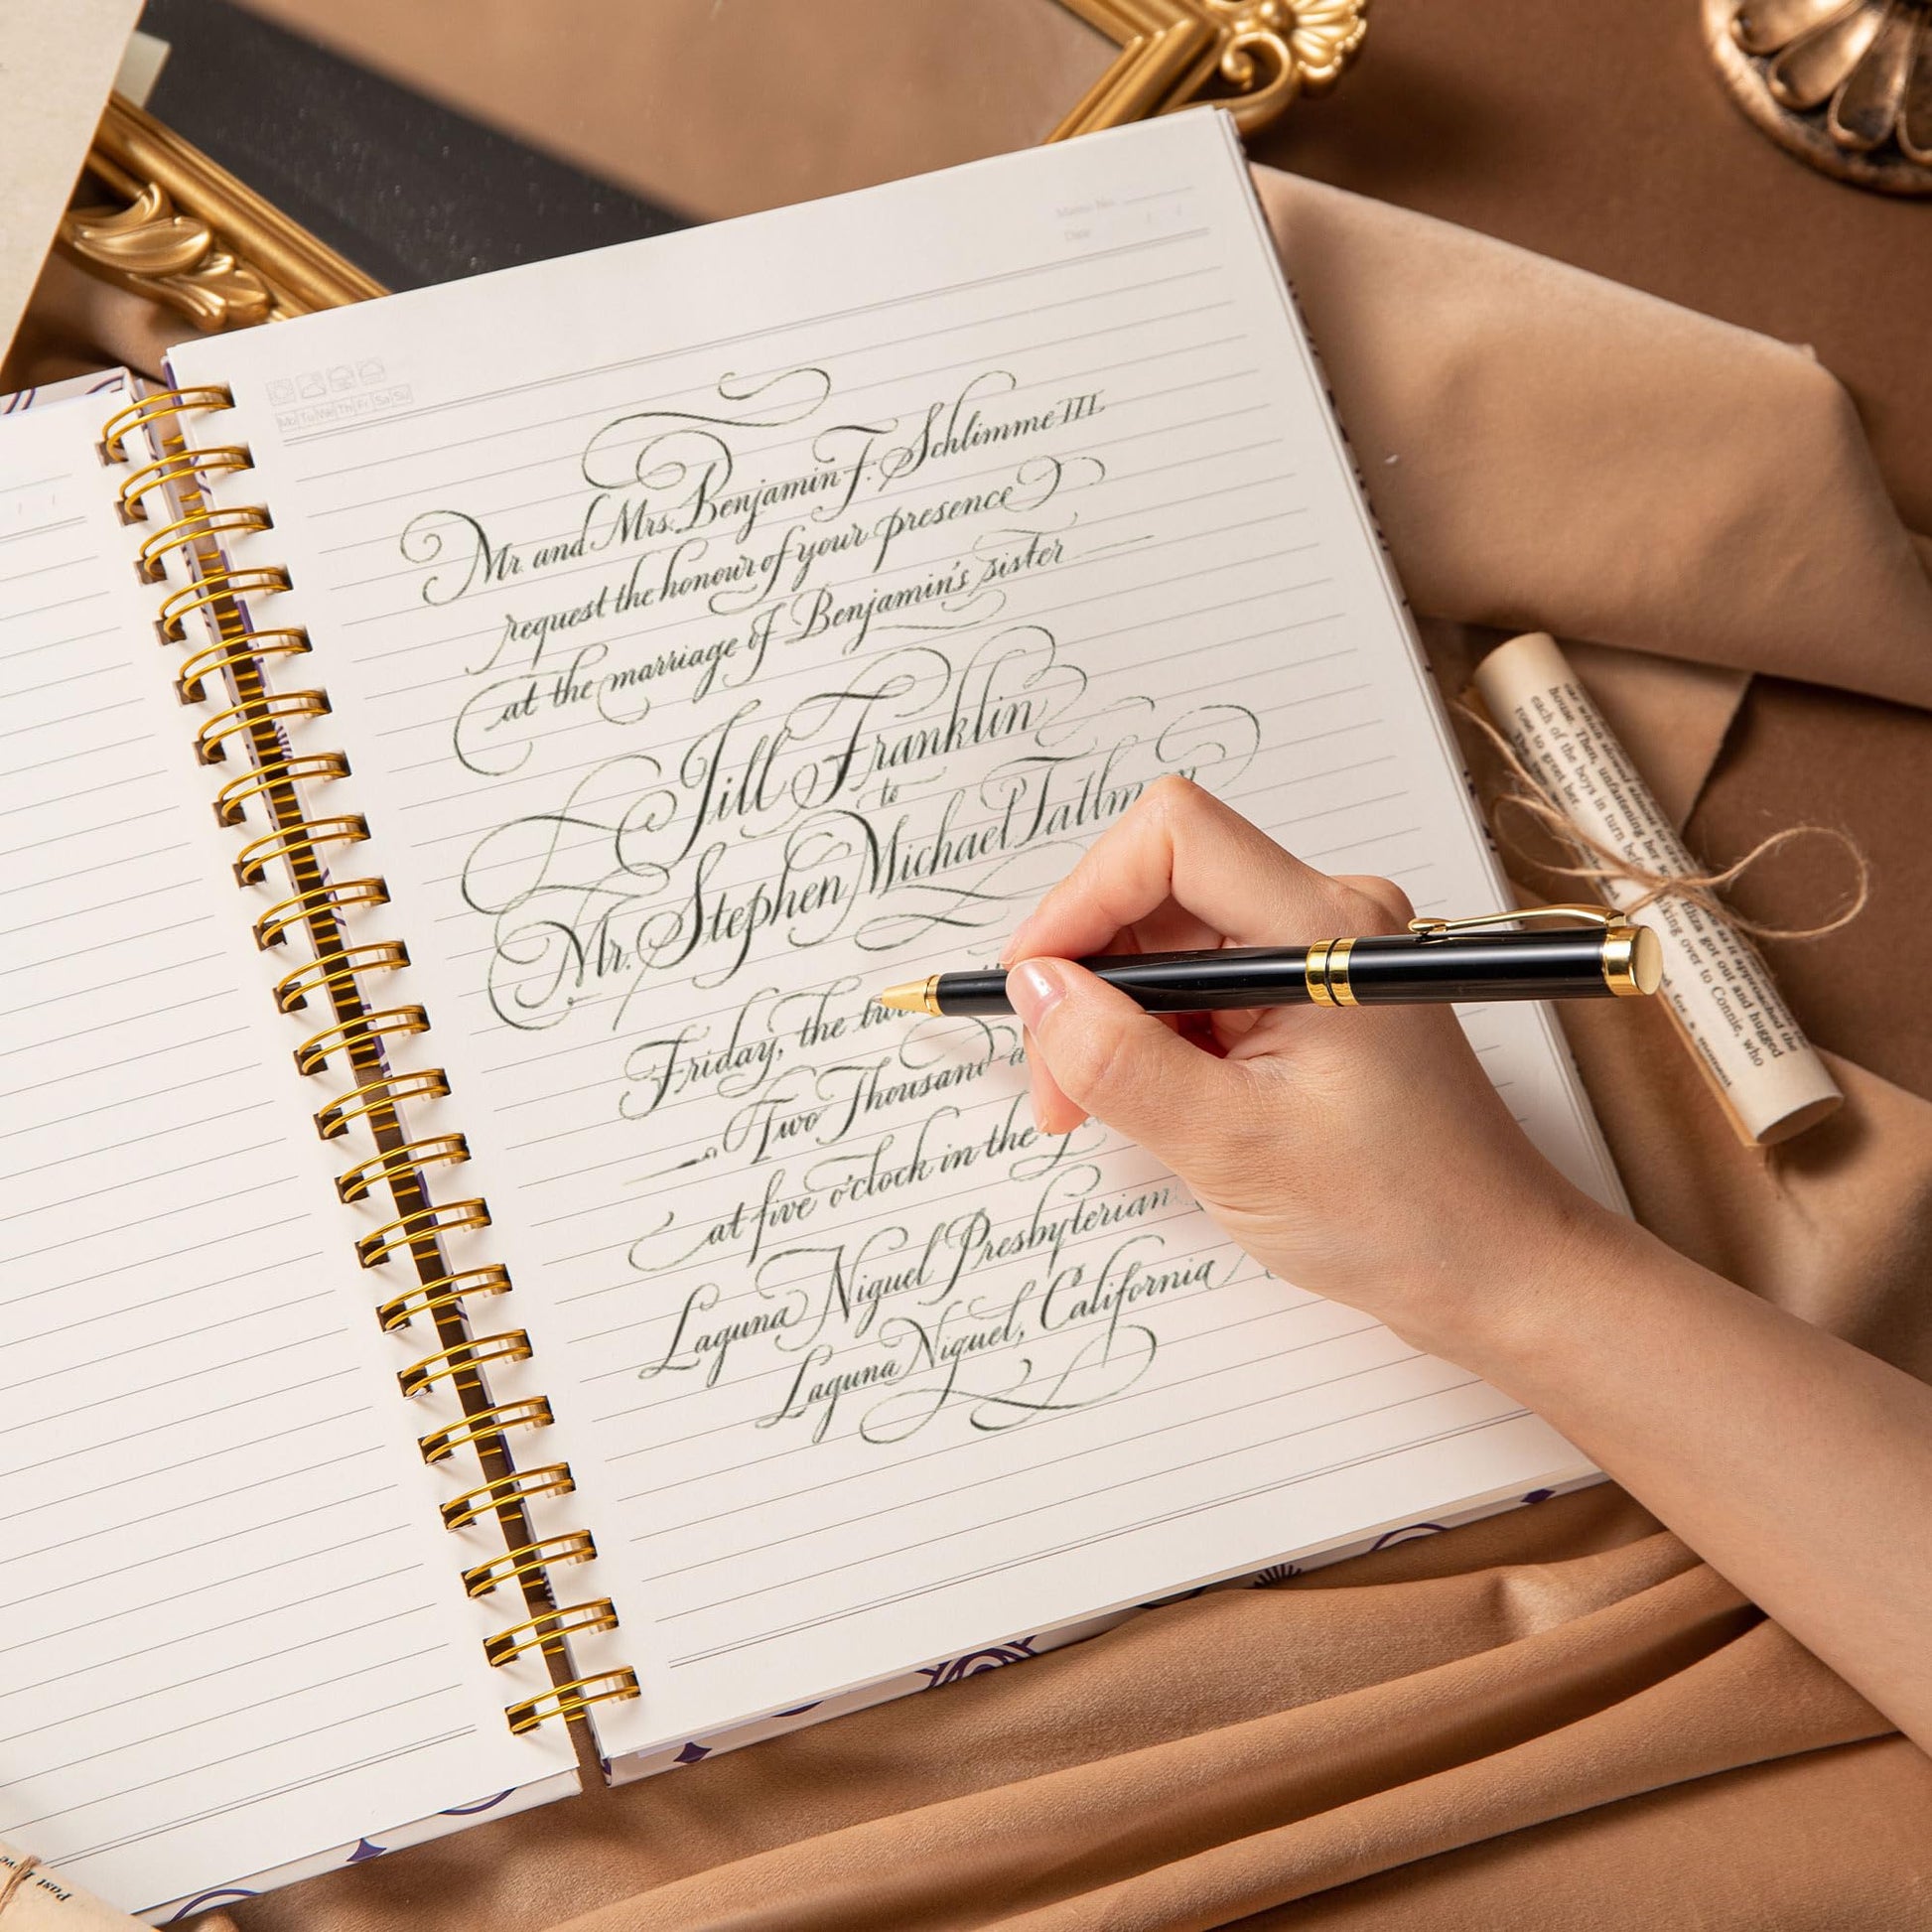 Memo No.
Date
Mo Tu We Th Fr Sa Su
Mr. and Mrs. Benjamin F. Schlimme III
request the honour of your presence
at the marriage of Benjamin's sister
Jill Franklin
to
Mr. Stephen Michael Tallman
Friday, the
Two Thousand
at five o'clock in the
Laguna Niguel Presbyterian
Laguna Niguel, California
house. Then, unfastening her
each of the boys in turn
rose to greet her.
Eliza got out and hugged
king over to Connie, who
for a moment
Past